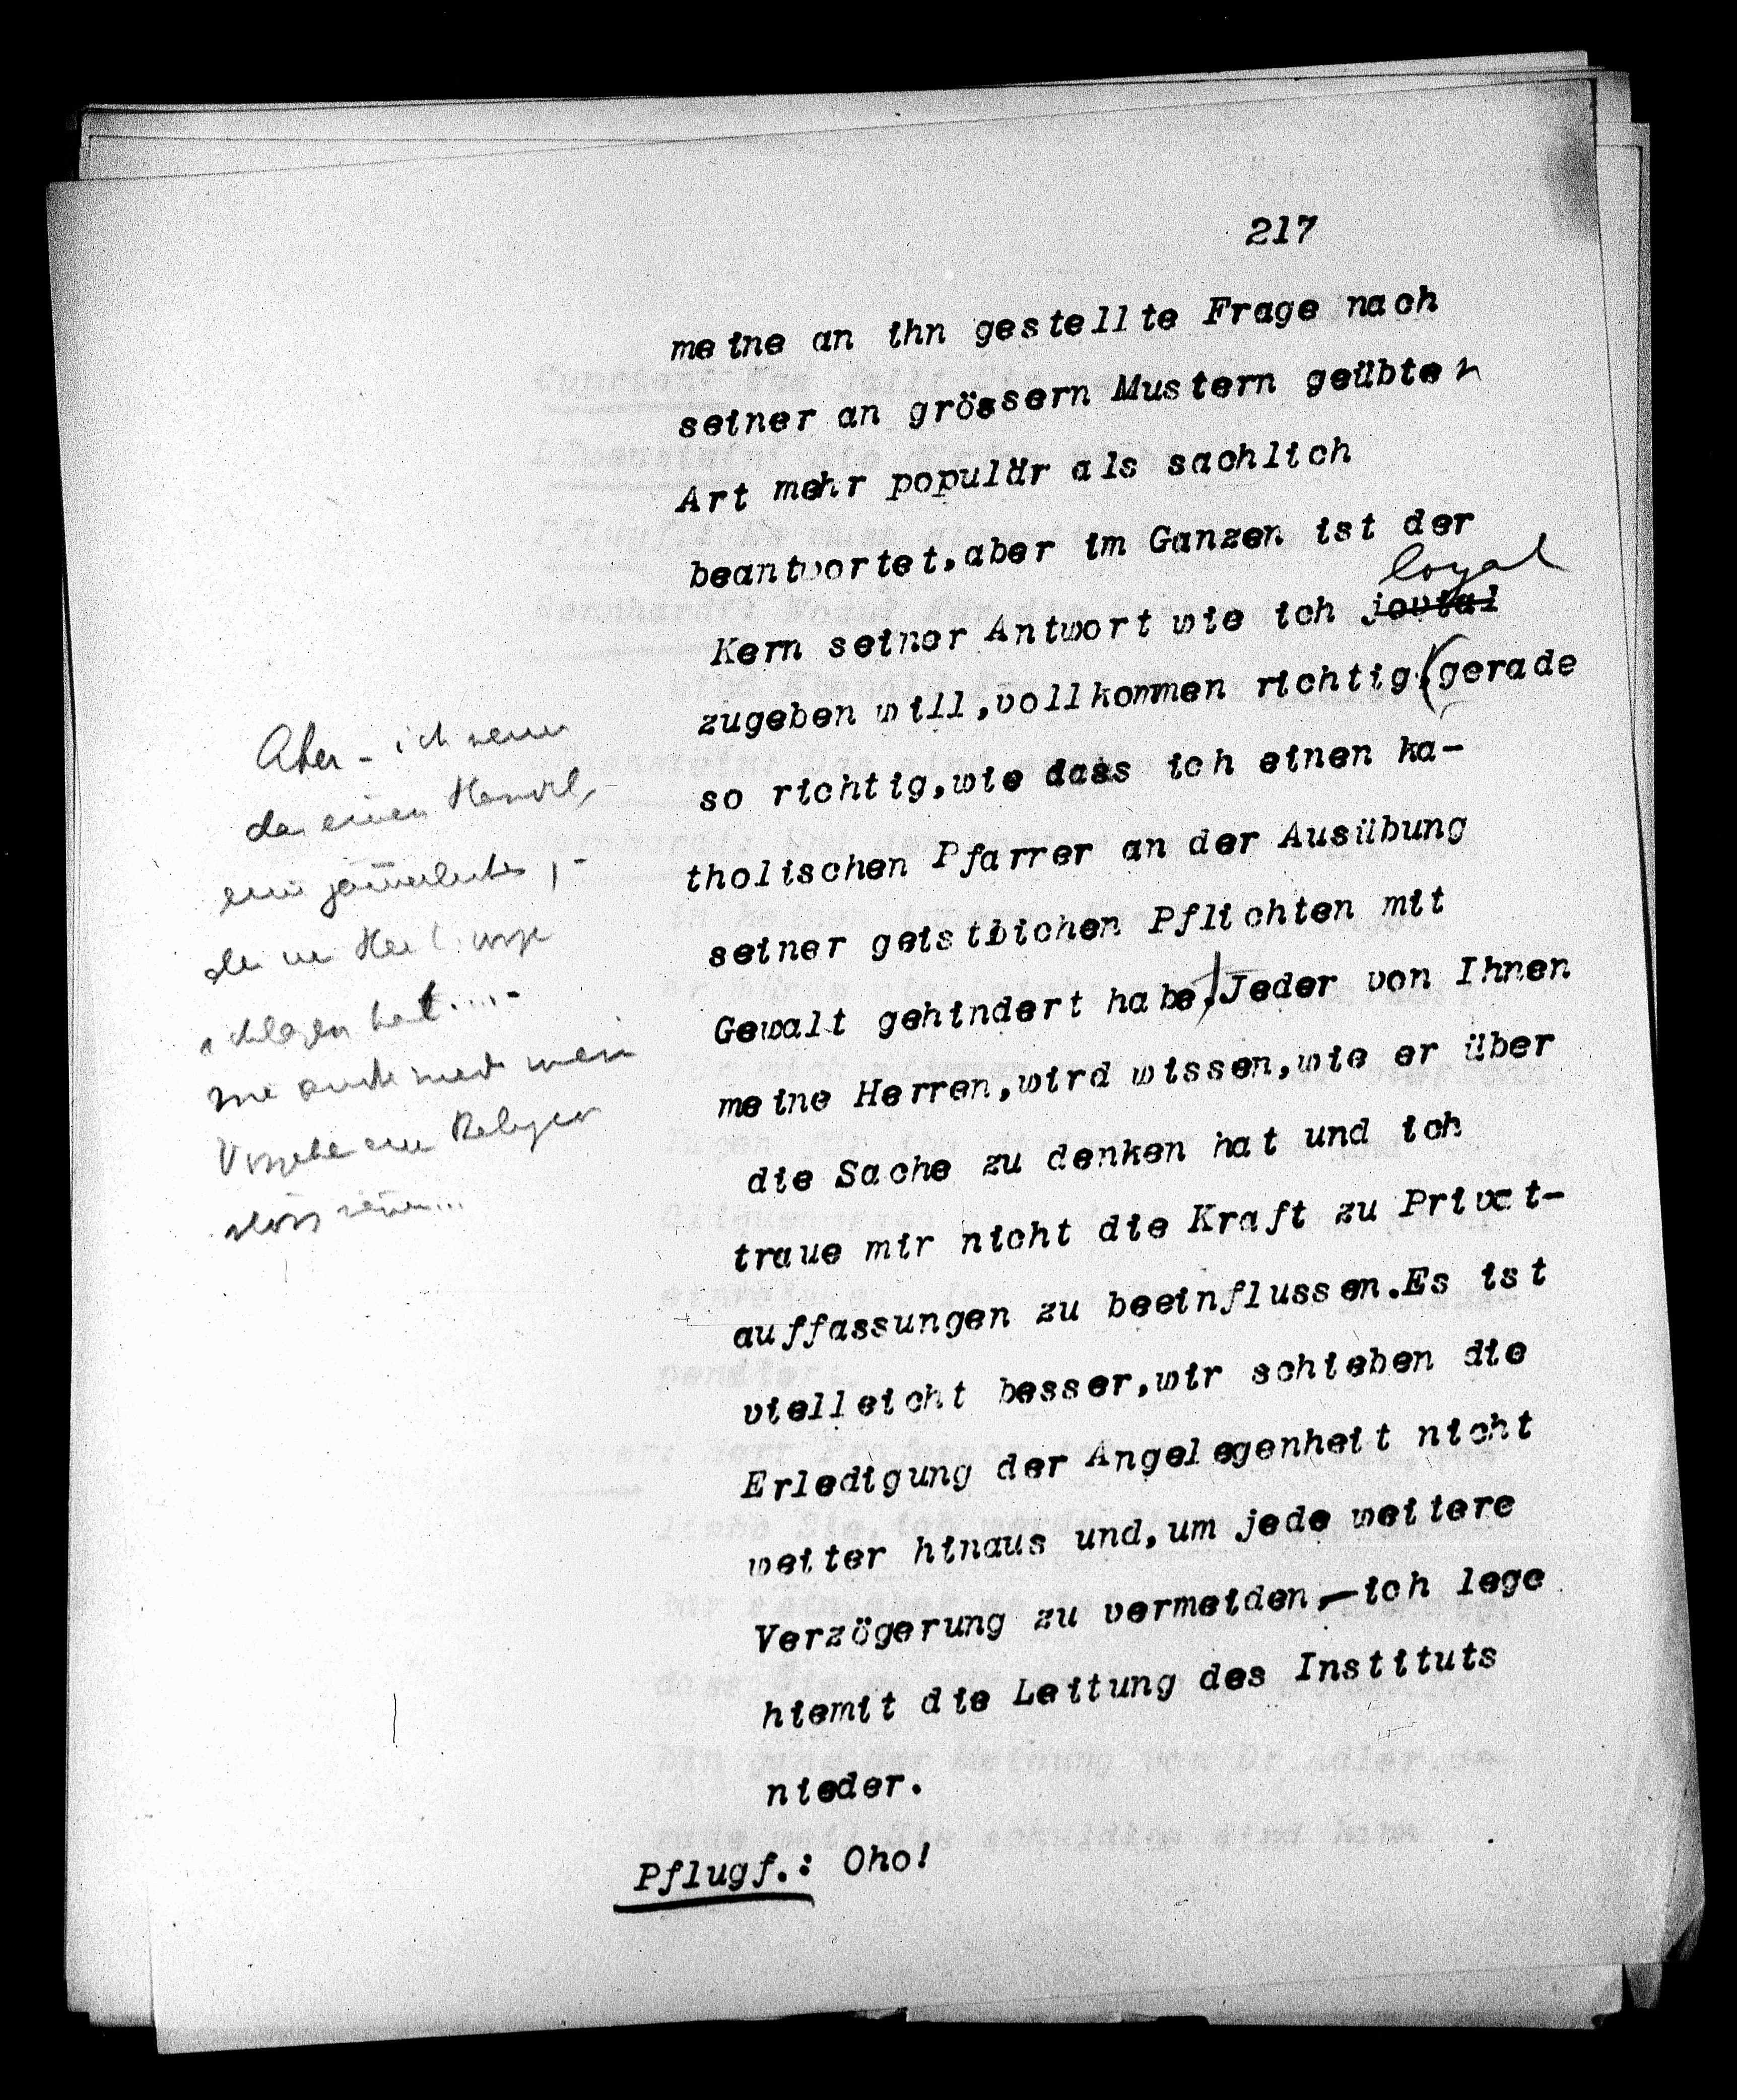 217
meine an ihn gestellte Frage nach
seiner an grössern Mustern geübten
Art mehr populär als sachlich
beantwortet,aber im Ganzen ist der
loyal
Kern seiner Antwort wie ich jovial
zugeben will,vollkommen richtig.(gerade
so richtig,wie dass ich einen ka-
tholischen Pfarrer an der Ausübung
seiner geistlichen Pflichten mit
Gewalt gehindert habe.)Jeder von Ihnen
meine Herren,wird wissen,wie er über
die Sache zu denken hat und ich
traue mir nicht die Kraft zu Privat-
auffassungen zu beeinflussen.Es ist
vielleicht besser,wir schieben die
Erledigung der Angelegenheit nicht
weiter hinaus und,um jede weitere
Verzögerung zu vermeiden,—ich lege
hiemit die Leitung des Instituts
nieder.
Pflugf.: Oho!
Aber - ich nenne
das einen Handel,
hat....-
mein
Religions